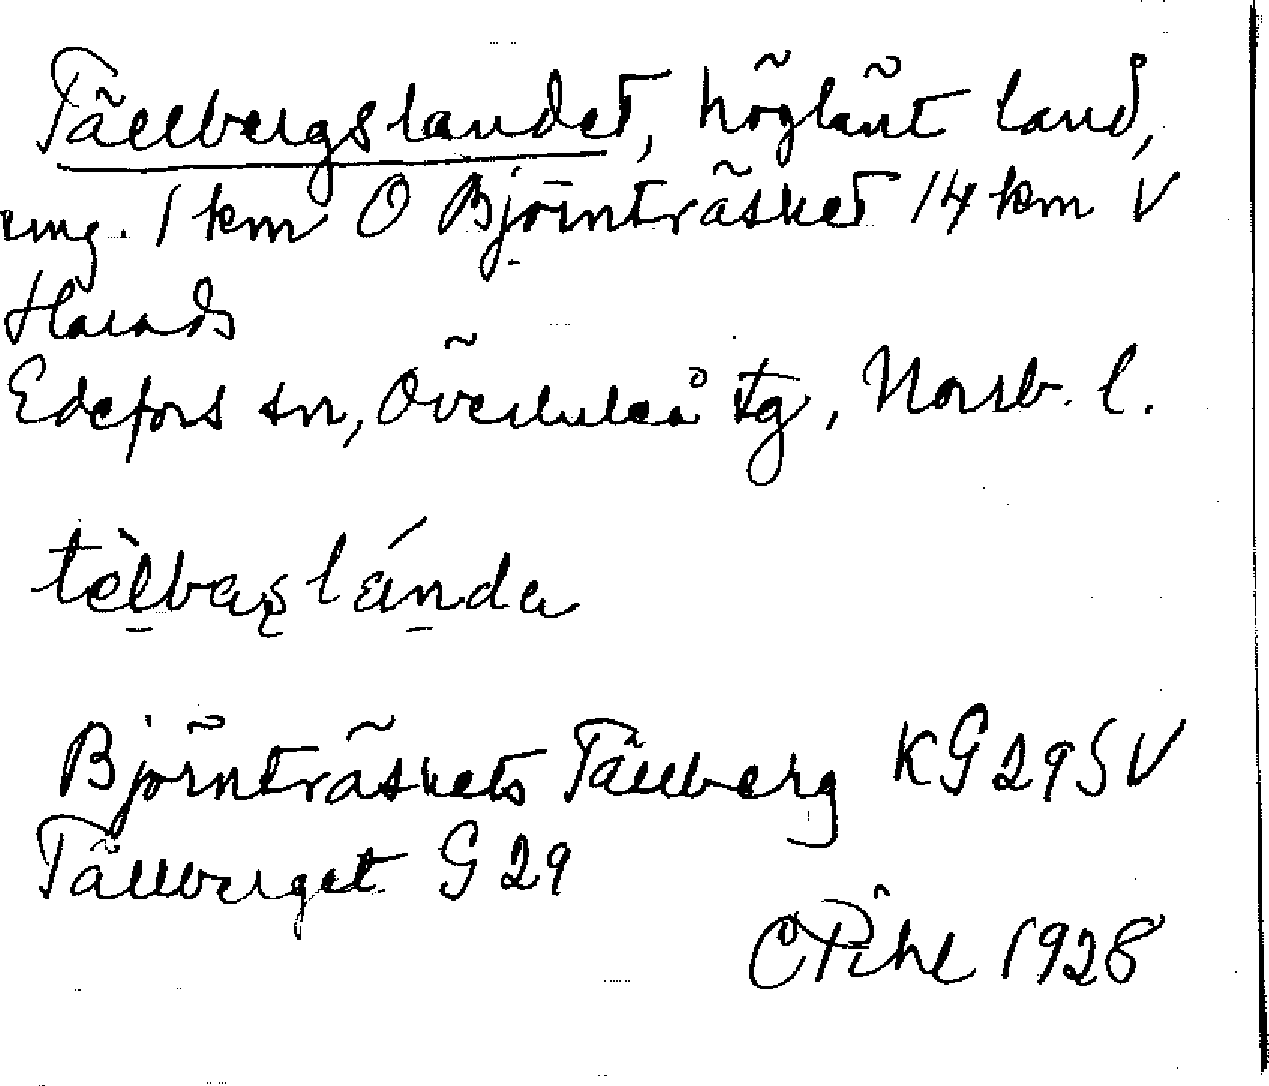 Tällbergslandet, höglänt land,
ung. 1 km O Björnträsket 14 km V
Harads
Edefors sn, Överluleå tg, Norrb. l.
tèlbaʂlánda
Björnträskets Tällberg KG 29 SV
Tällberget G 29
C Pihl 1928